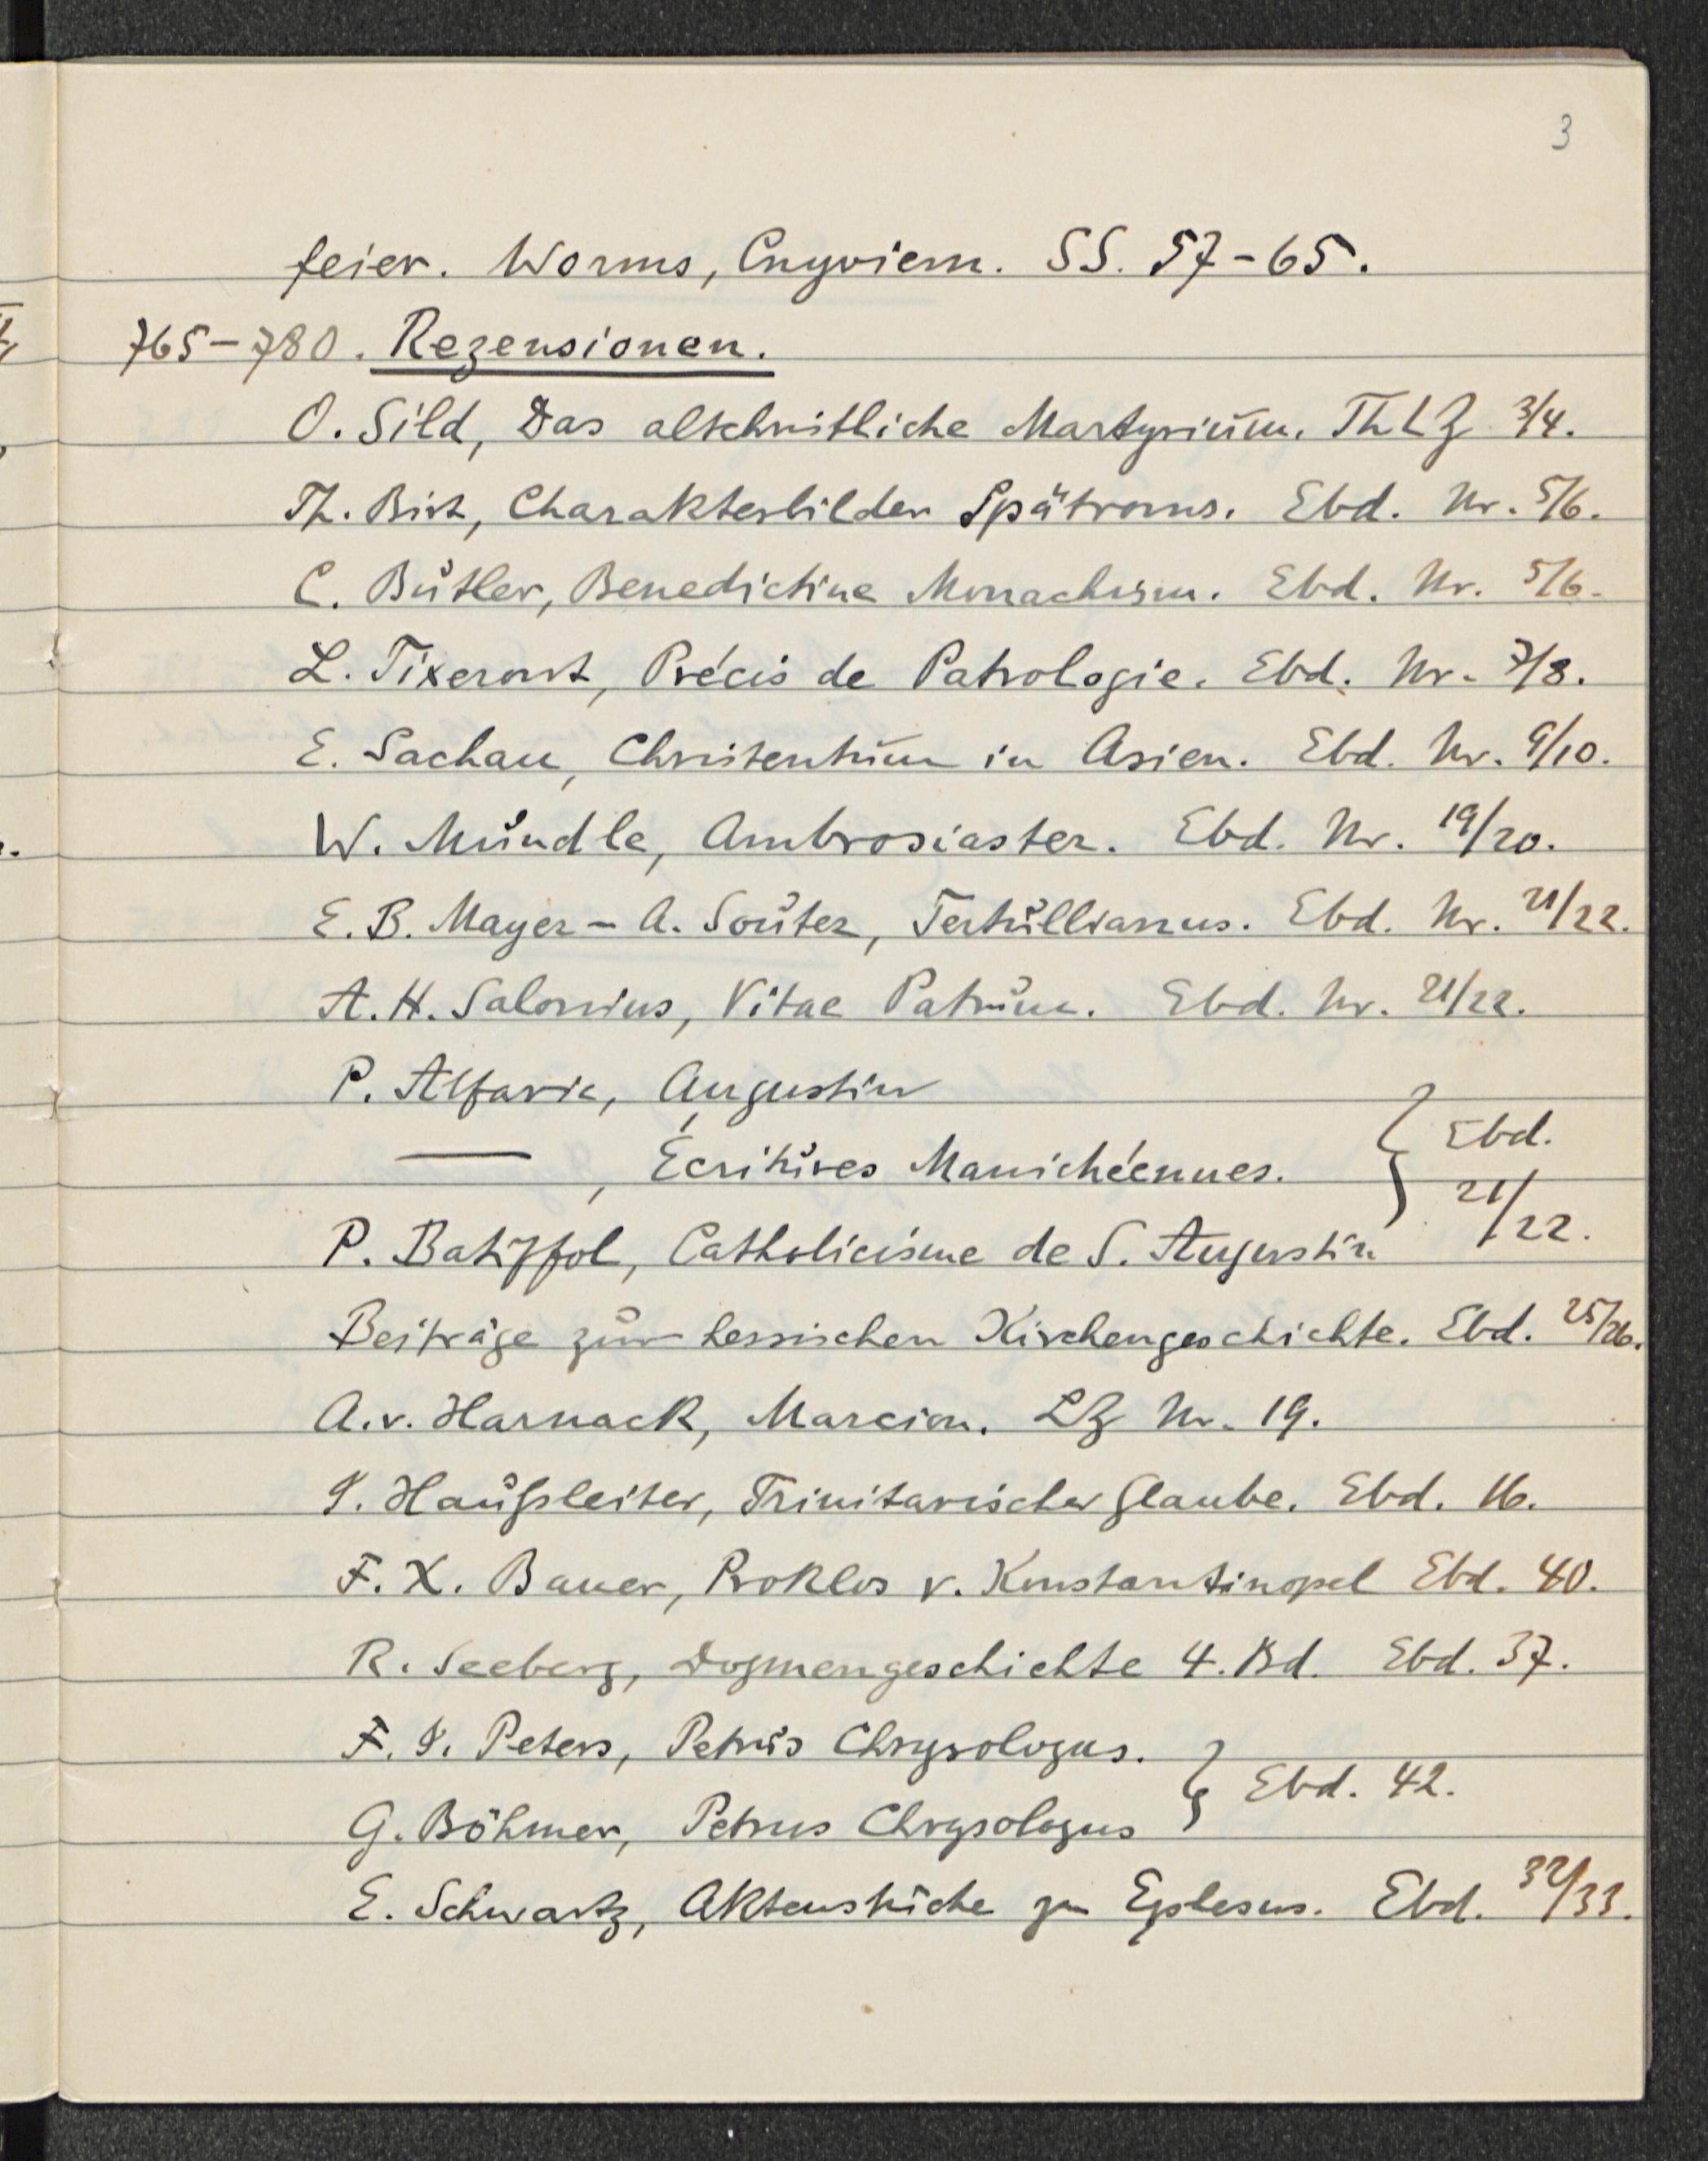 3
feier. Worms, Cnyviem. SS. 57-65.
765-780. Rezensionen.
O. Sild, Das altchristliche Martyrium. ThLZ 3/4.
Th. Birt, Charakterbilder Spätroms. Ebd. Nr. 5/6.
C. Butler, Benedictine Monachism. Ebd. Nr. 5/6.
L. Tixeront, Précis de Patrologie. Ebd. Nr. 7/8.
E. Sachau, Christentum in Asien. Ebd. Nr. 9/10.
W. Mundle, Ambrosiaster. Ebd. Nr. 19/20.
E. B. Mayer - A. Souter, Tertullianus. Ebd. Nr. 21/22.
A. H. Salonius, Vitae Patrum. Ebd. Nr. 21/22.
P. Alfaric, Augustin
——, Écritures Manichéennes. } Ebd. 21/22.
P. Batiffol, Catholicisme de S. Augustin
Beiträge zur hessischen Kirchengeschichte. Ebd. 25/26.
A. v. Harnack, Marcion. LZ Nr. 19.
J. Haußleiter, Trinitarischer Glaube. Ebd. 16.
F. X. Bauer, Proklos v. Konstantinopel Ebd. 40.
R. Seeberg, Dogmengeschichte 4. Bd. Ebd. 37.
F. J. Peters, Petrus Chrysologus. } Ebd. 42.
G. Böhmer, Petrus Chrysologus
E. Schwartz, Aktenstücke zu Ephesus. Ebd. 32/33.